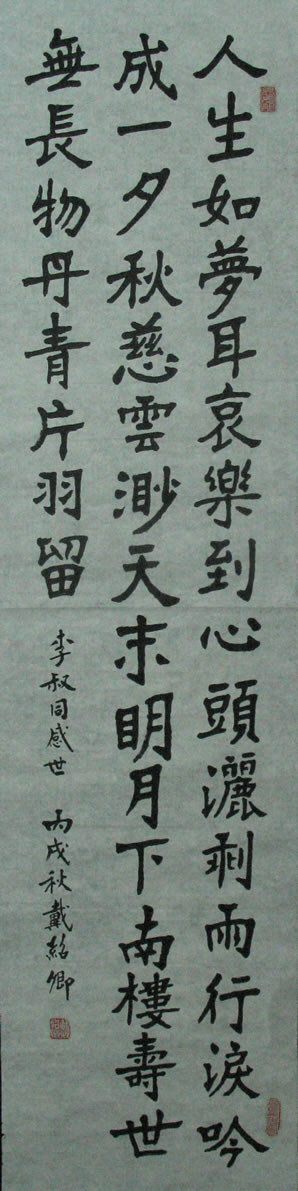 人生如夢耳哀樂到心頭灑剩雨行淚吟
成一夕秋慈雲渺天末明月下南樓壽世
無長物丹青片羽留
李叔同感世
丙戌秋戴紹卿